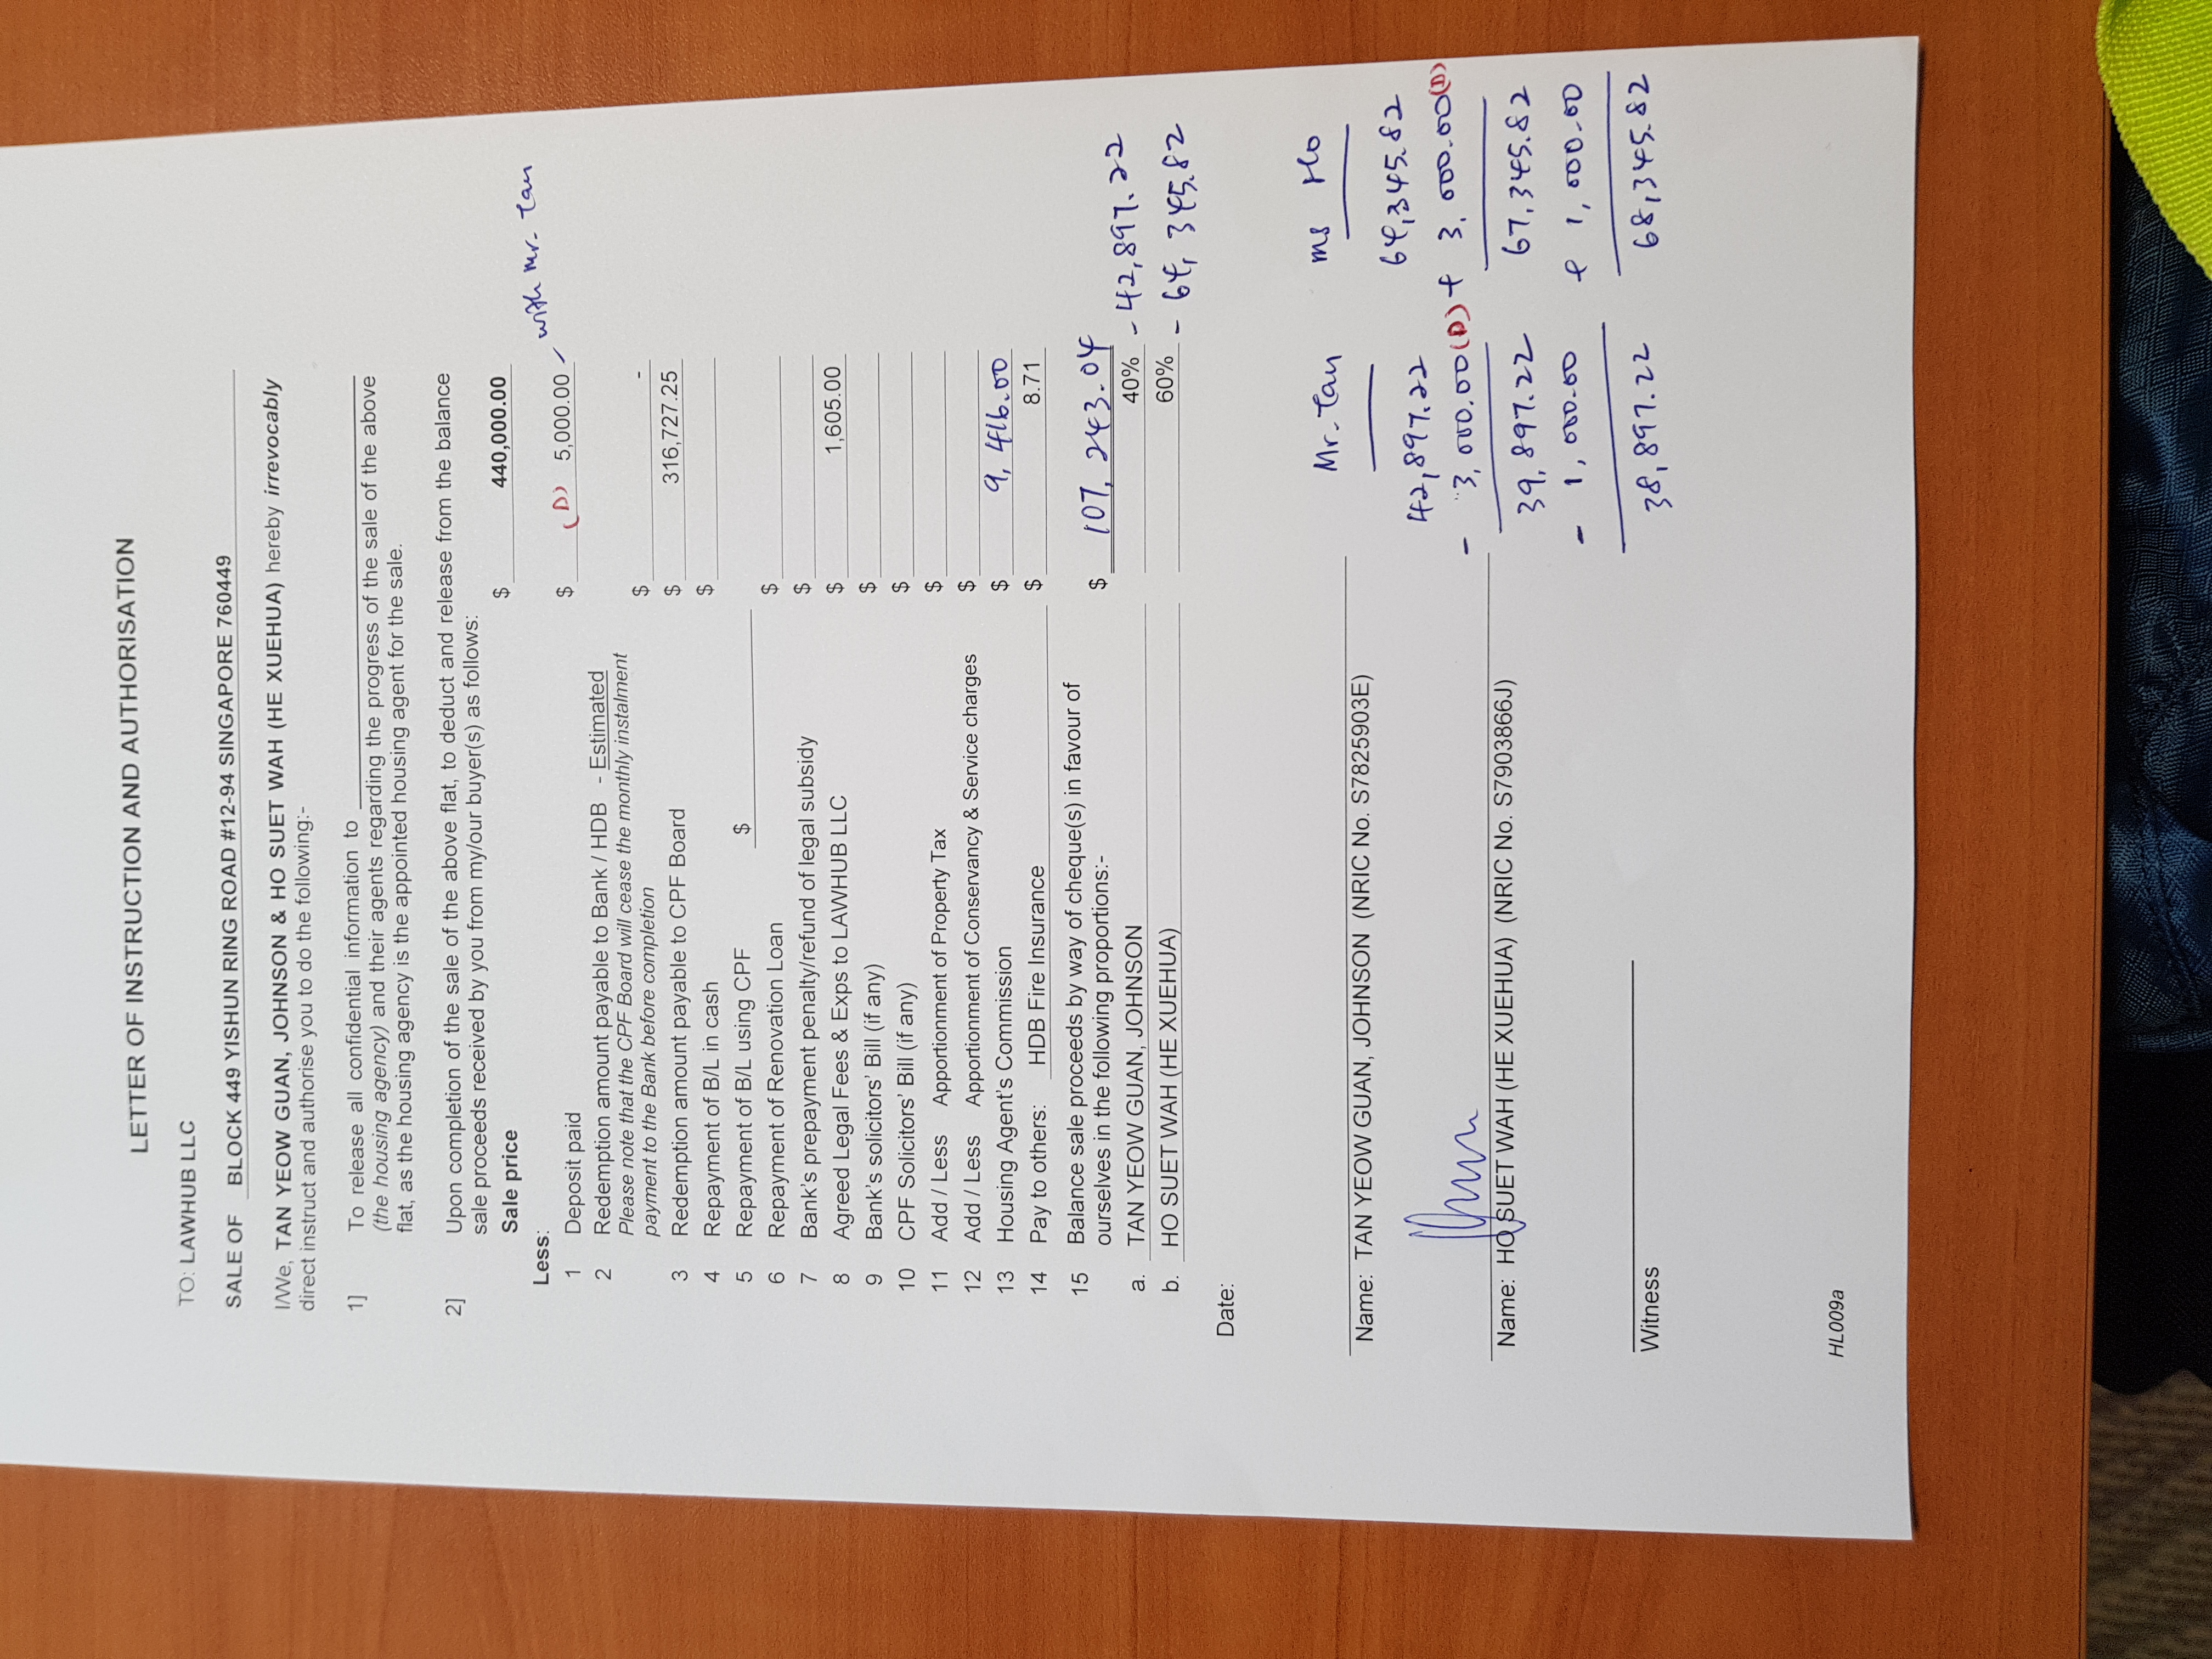 LETTER OF INSTRUCTION AND AUTHORISATION
TO: LAWHUB LLC
SALE OF BLOCK 449 YISHUN RING ROAD #12-94 SINGAPORE 760449
I/We, TAN YEOW GUAN, JOHNSON & HO SUET WAH (HE XUEHUA) hereby irrevocably
direct instruct and authorise you to do the following:-
1] To release all confidential information to
(the housing agency) and their agents regarding the progress of the sale of the above
flat, as the housing agency is the appointed housing agent for the sale.
2] Upon completion of the sale of the above flat, to deduct and release from the balance
sale proceeds received by you from my/our buyer(s) as follows:
Sale price $ 440,000.00
Less:
1 Deposit paid $ (D) 5,000.00 with Mr. Tan
2 Redemption amount payable to Bank / HDB - Estimated
Please note that the CPF Board will cease the monthly instalment
payment to the Bank before completion $ -
3 Redemption amount payable to CPF Board $ 316,727.25
4 Repayment of B/L in cash $
5 Repayment of B/L using CPF $
6 Repayment of Renovation Loan $
7 Bank's prepayment penalty/refund of legal subsidy $
8 Agreed Legal Fees & Exps to LAWHUB LLC $ 1,605.00
9 Bank's solicitors' Bill (if any) $
10 CPF Solicitors' Bill (if any) $
11 Add / Less Apportionment of Property Tax $
12 Add / Less Apportionment of Conservancy & Service charges $
13 Housing Agent's Commission $ 9,416.00
14 Pay to others: HDB Fire Insurance $ 8.71
15 Balance sale proceeds by way of cheque(s) in favour of
ourselves in the following proportions:- $ 107,243.04
a. TAN YEOW GUAN, JOHNSON 40% - 42,897.22
b. HO SUET WAH (HE XUEHUA) 60% - 64,345.82
Date:
Mr. Tan ms Ho
Name: TAN YEOW GUAN, JOHNSON (NRIC No. S7825903E)
42,897.22 64,345.82
- 3,000.00 (D) + 3,000.00 (D)
Name: HO SUET WAH (HE XUEHUA) (NRIC No. S7903866J)
39,897.22 67,345.82
- 1,000.00 + 1,000.00
Witness
38,897.22 68,345.82
HL009a